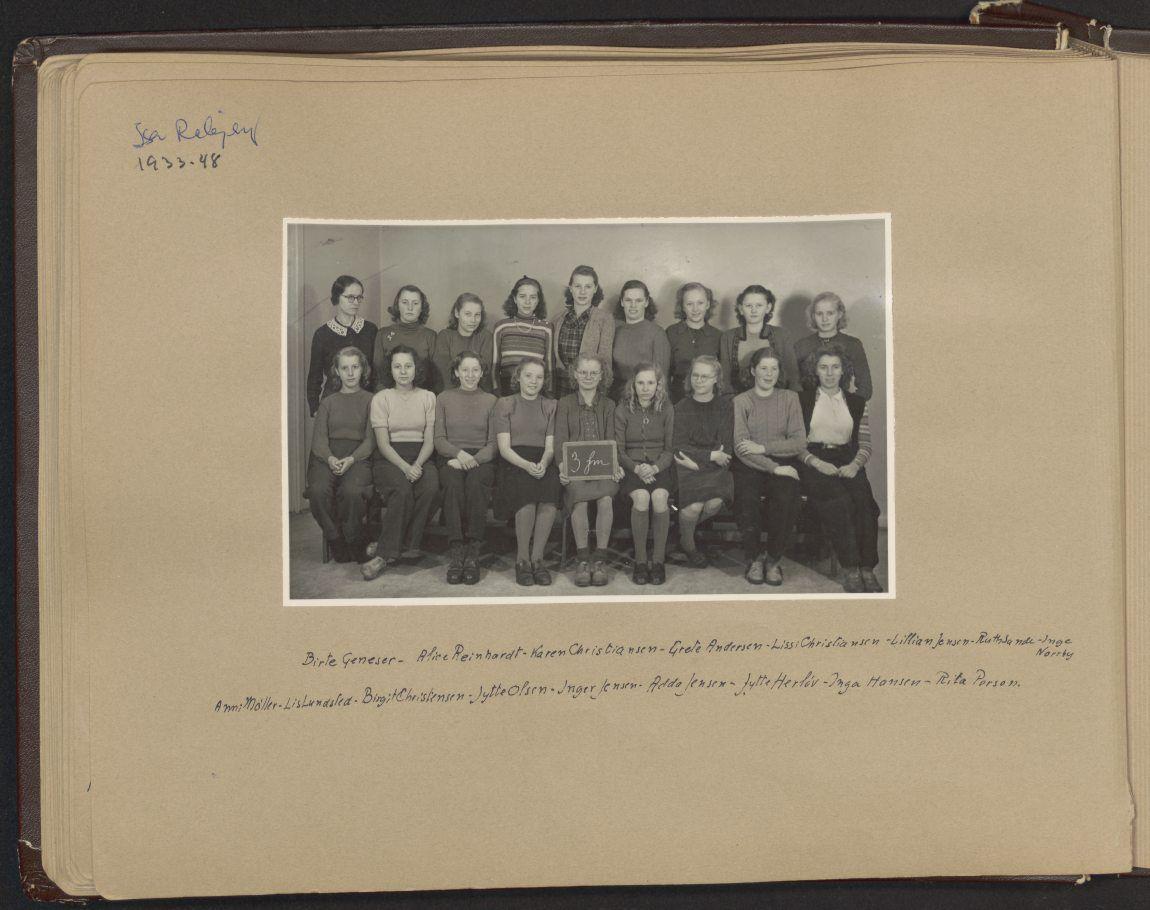 1933-48
3 fm
Birte Geneser - Alice Reinhardt - Karen Christiansen - Grete Andersen - Lissi Christiansen - Lillian Jensen - Ruth Sande - Inge
Norrby
Anni Møller - Lis Lundsted - Birgit Christensen - Jytte Olsen - Inger Jensen - Adda Jensen - Jytte Herløv - Inga Hansen - Rita Porson.